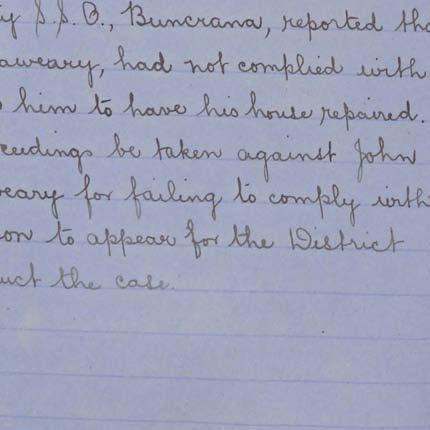 y S.S.O., Buncrana, reported tha
aweary, had not complied with
him to have his house repaired.
ceedings be taken against John
weary for failing to comply with
on to appear for the District
uct the case.